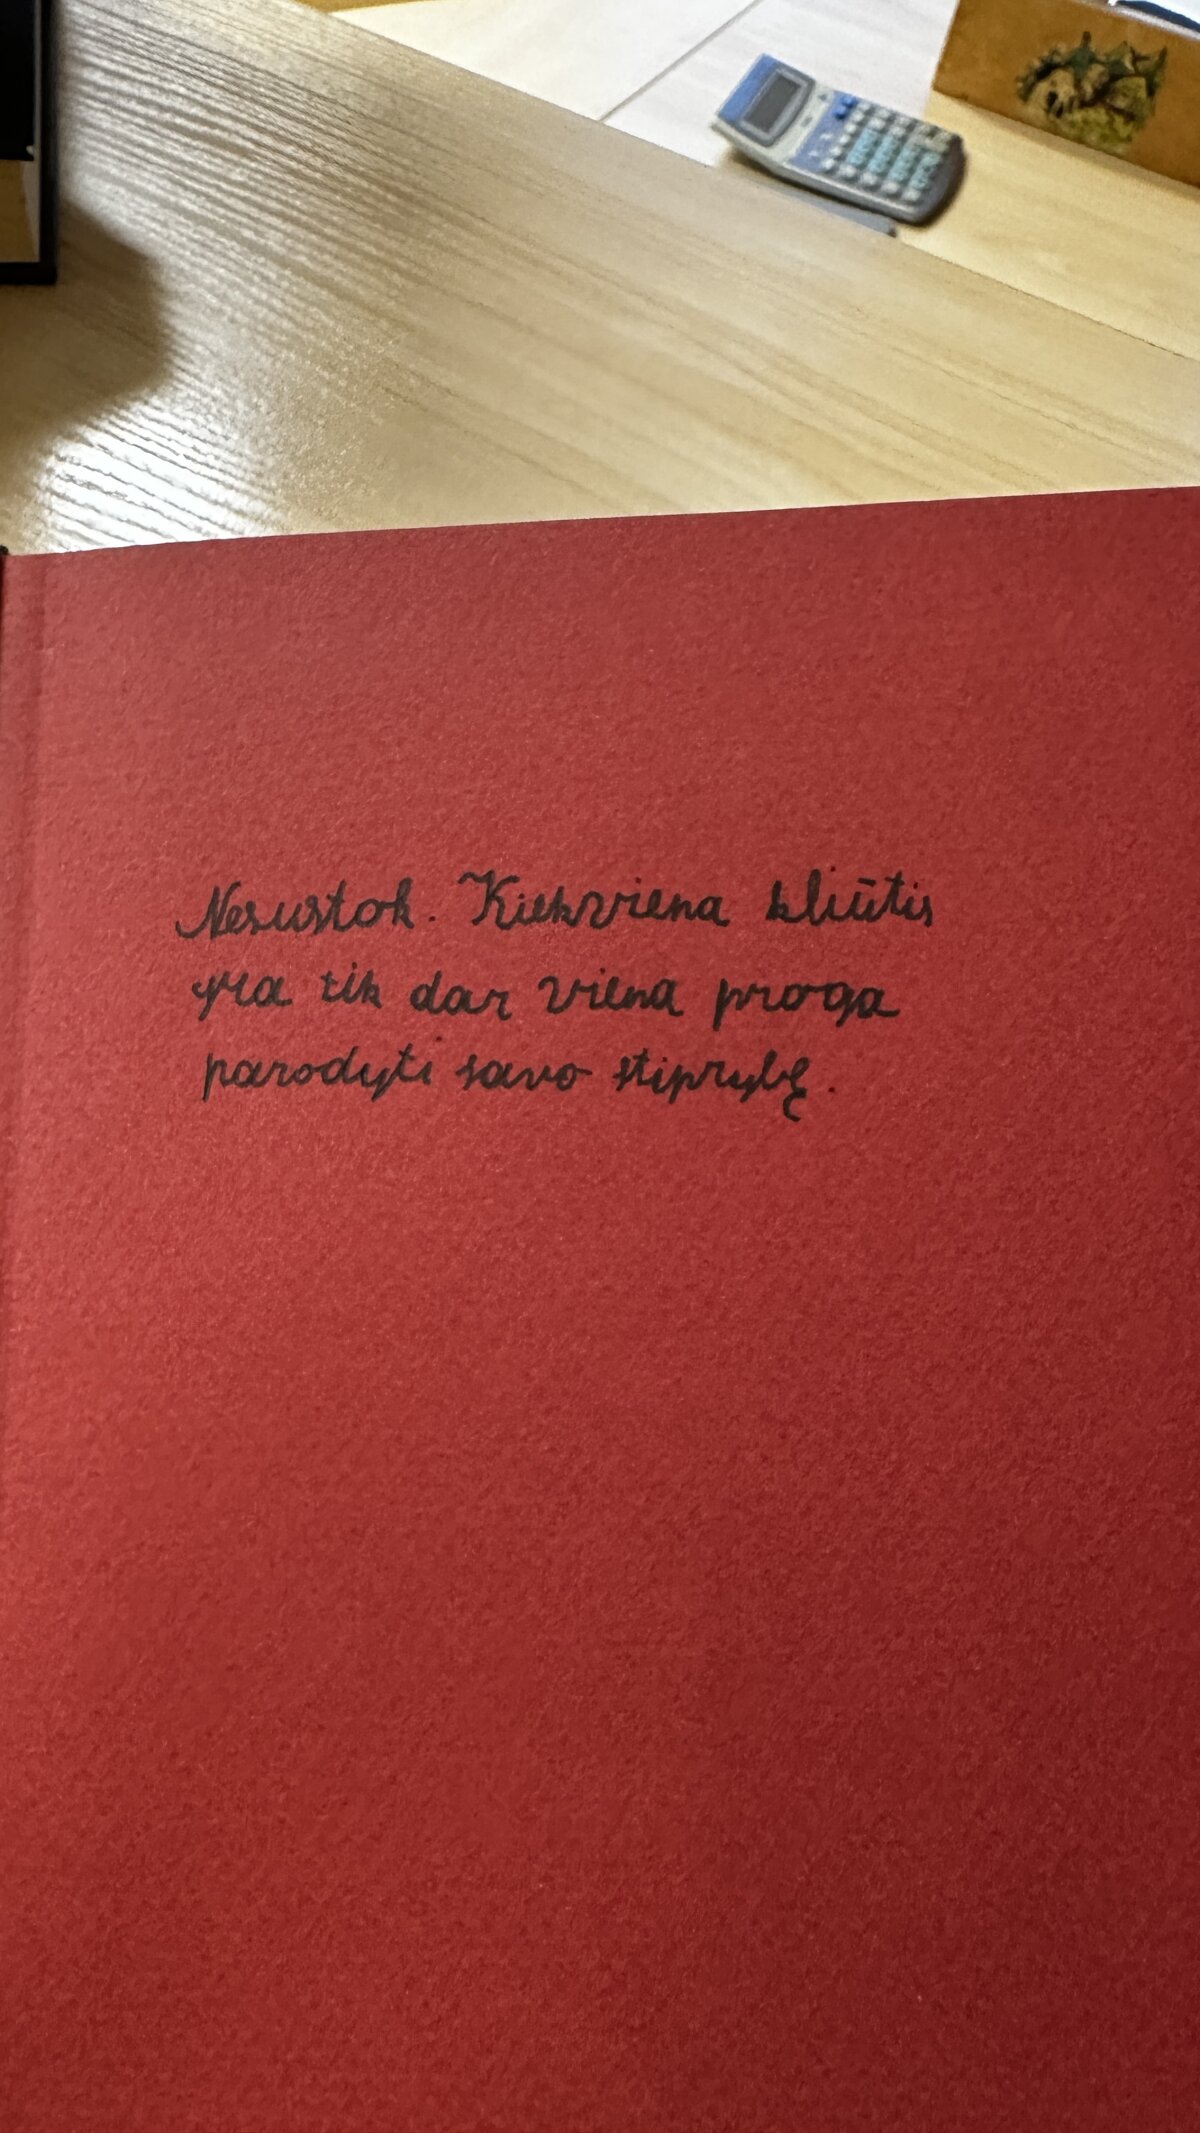 Nesustok. Kiekviena kliūtis
yra tik dar viena proga
parodyti savo stiprybę.